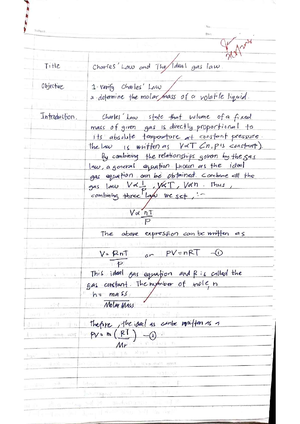 Title Charles' Law and The Ideal gas law
Objective 1. Verify Charles' Law
2. determine the molar mass of a volatile liquid.
Introduction Charles' Law state that volume of a fixed
mass of given gas is directly proportional to
its absolute temperature at constant pressure
The law is written as V∝T (n, P is constant)
By combining the relationships govern by the gas
law, a general equation known as the ideal
gas equation can be obtained. Combine all the
gas law V∝ 1/P , V∝T, V∝n. Thus,
combining three law we get, :-
V∝ nT
P
The above expression can be written as
V= RnT or PV=nRT —①
P
This ideal gas equation and R is called the
gas constant. The number of mole, n
n = mass
Molar Mass
Therefore, the ideal can be written as
PV= m ( RT ) —②
Mr